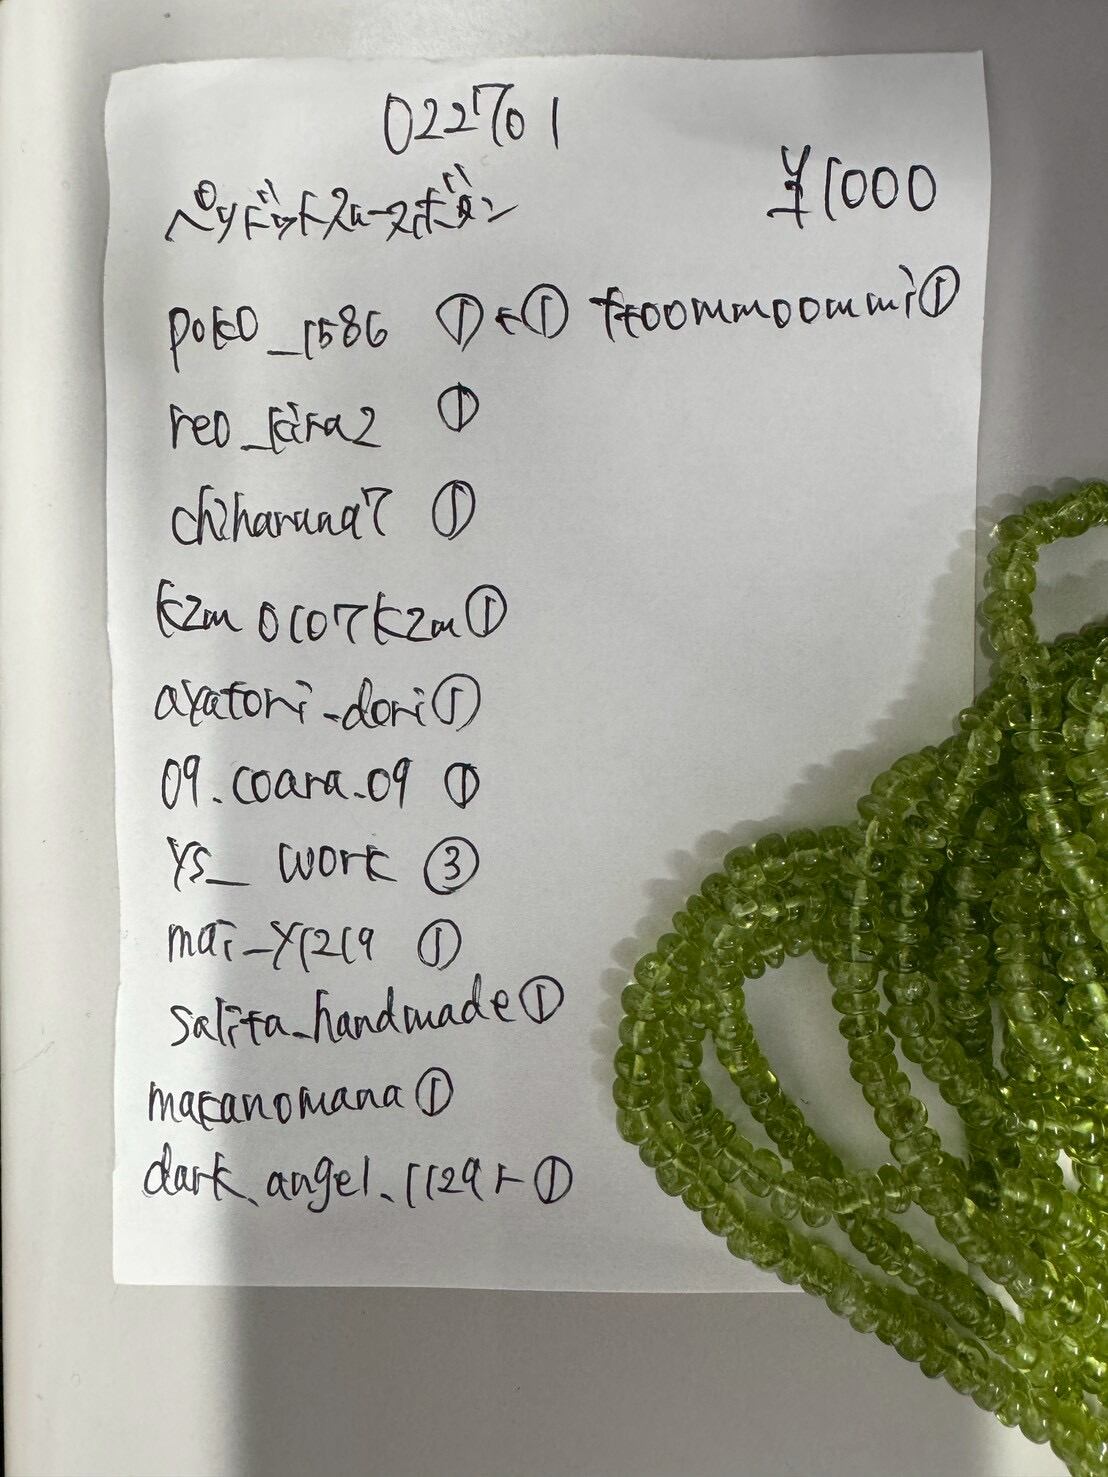 022701
ペリドットスムースボタン ¥1000
poko_1586 ①+① ttoommoommi①
reo_kira2 ①
chiharuna7 ①
kzm0107kzm①
ayatori_dori①
09.coara.09 ①
ys_ work ③
mai_y1219 ①
salita_handmade①
makanomana①
dark.angel.1129r①